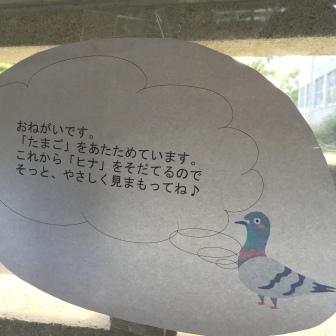 おねがいです。
「たまご」をあたためています。
これから「ヒナ」をそだてるので
そっと、やさしく見まもってね♪